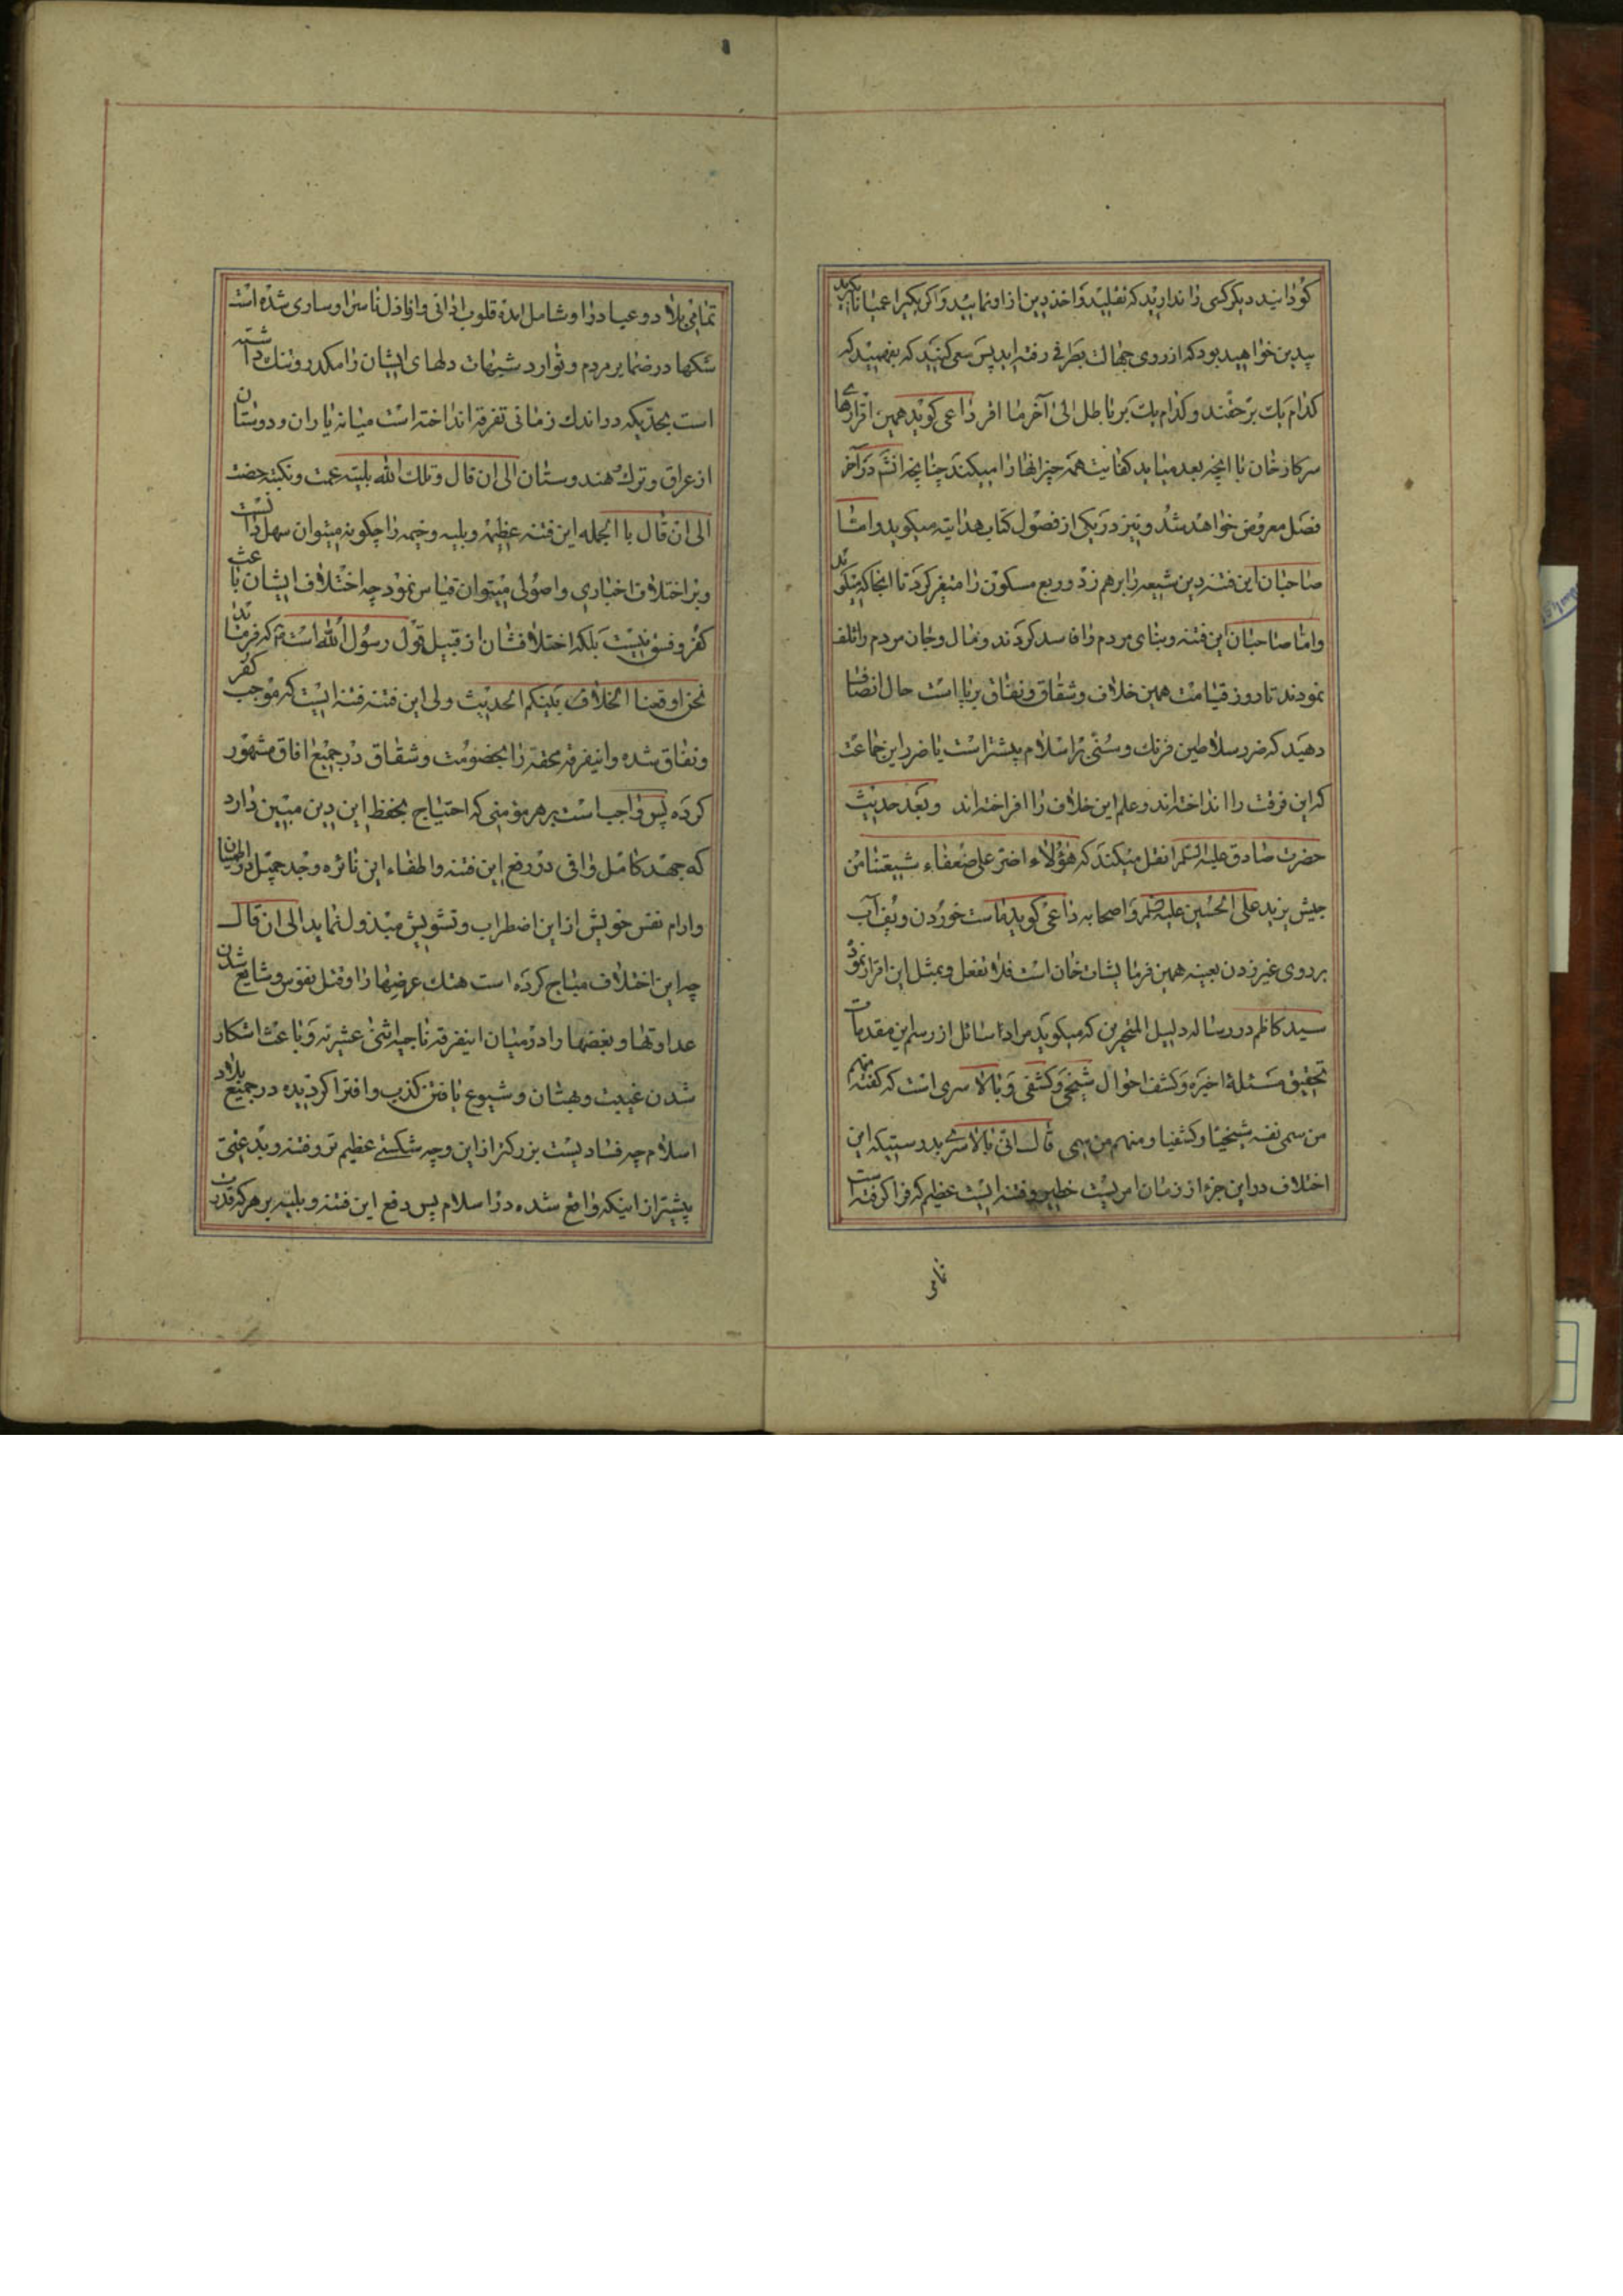 کردانید دیگر کسی را ندارید که تقلید و اخذ دین از او نمایید و اگر یکیرا عمیانا بگیرید
بیدین خواهید بود که از روی جهالت بطرفی رفته اید پس سعی کنید که بفهمید که
کدام یک برحقند و کدام یک بر باطل الی آخر ما افر داعی کوید همین اقرارهای
سرکار خان با انچه بعد میاید کفایت همه چیز انها را میکند چنانچه انش در آخر
فصل معروض خواهد شد و نیز در یکی از فصول کتاب هدایته میکوید و امثا
صاحبان این فتنه دین شیعه را برهم زد و ربع مسکون را متغیر کرد تا انجا که میکوید
و اما صاحبان این فتنه و بنای مردم را فاسد کردند و مال و جان مردم را تلف
نمودند تا روز قیامت همین خلاف و شقاق و نفاق برپا است حال انصاف
دهید که ضرر سلاطین فرنک و سنی بر اسلام بیشتر است یا ضرر این جماعت
که این فرقت را انداخته اند و علم این خلاف را افراخته اند و بعد حدیث
حضرت صادق علیه السلم را نقل میکند که هؤلاء اضر علی ضعفاء شیعتنا من
جیش یزید علی الحسین علیه السلم و اصحابه داعی کوید ماست خوردن و یف آب
بر روی غیر زدن بعینه همین فرمایشات خان است فلا تغفل و بمثل این اقرار نموده
سید کاظم در رساله دلیل المتحیرین که میکوید مراد سائل از رسم این مقدمات
تحقیق مسئلۀ اخیره و کشف احوال شیخی و کشفی و بالا سری است که کفته منهم
من سمی نفسه شیخیا و کشفیا و منهم من سمی قال انی بالاسری بدرستیکه این
اختلاف در این جزء از زمان امریست خطیر و فتنه ایست عظیم که فرا کرفته است
تمامی
تمامی بلاد و عباد را و شامل امده قلوب ادانی و اراذل ناس را و ساری شده است
شکها در ضمایر مردم و توارد شبهات دلهای ایشان را مکدر و تنک داشته
است بحدیکه در اندک زمانی تفرقه انداخته است میانه یاران و دوستان
از عراق و ترک هندوستان الی ان قال و تلک الله بلیته عمت و نکبته خصت
الی ان قال با الجمله این فتنه عظیمه و بلیه وخیمه را چکونه میتوان سهل دانست
و بر اختلاف اخباری و اصولی میتوان قیاس نمود چه اختلاف ایشان باعث
کفر و فسق نیست بلکه اختلافشان از قبیل قول رسول الله است که فرمودند
نحن اوقعنا الخلاف بینکم الحدیث ولی این فتنه فتنه ایست که موجب کفر
و نفاق شده و اینفرقه محقه را بخصومت و شقاق در جمیع افاق مشهور
کرده پس واجب است بر هر مؤمنی که احتیاج بحفظ این دین مبین دارد
که جهد کامل وافی در رفع این فتنه و اطفاء این نائره و جد جمیل در اطمینان
و ارام نفس خویش از این اضطراب و تشویش مبذول نماید الی ان قال
چه این اختلاف مباح کرده است هتک عرضها را و قتل نفوس و شایع شدن
عداوتها و بغضها را در میان اینفرقه ناجیه اثنی عشریه و باعث اشکار
شدن غیبت و بهتان و شیوع یافتن کذب و افترا کردیده در جمیع بلاد
اسلام چه فسادیست بزرکتر از این و چه شکستی عظیم تر و فتنه و بدعتی
بیشتر از اینکه واقع شده در اسلام پس دفع این فتنه و بلیه بر هر که قدرت